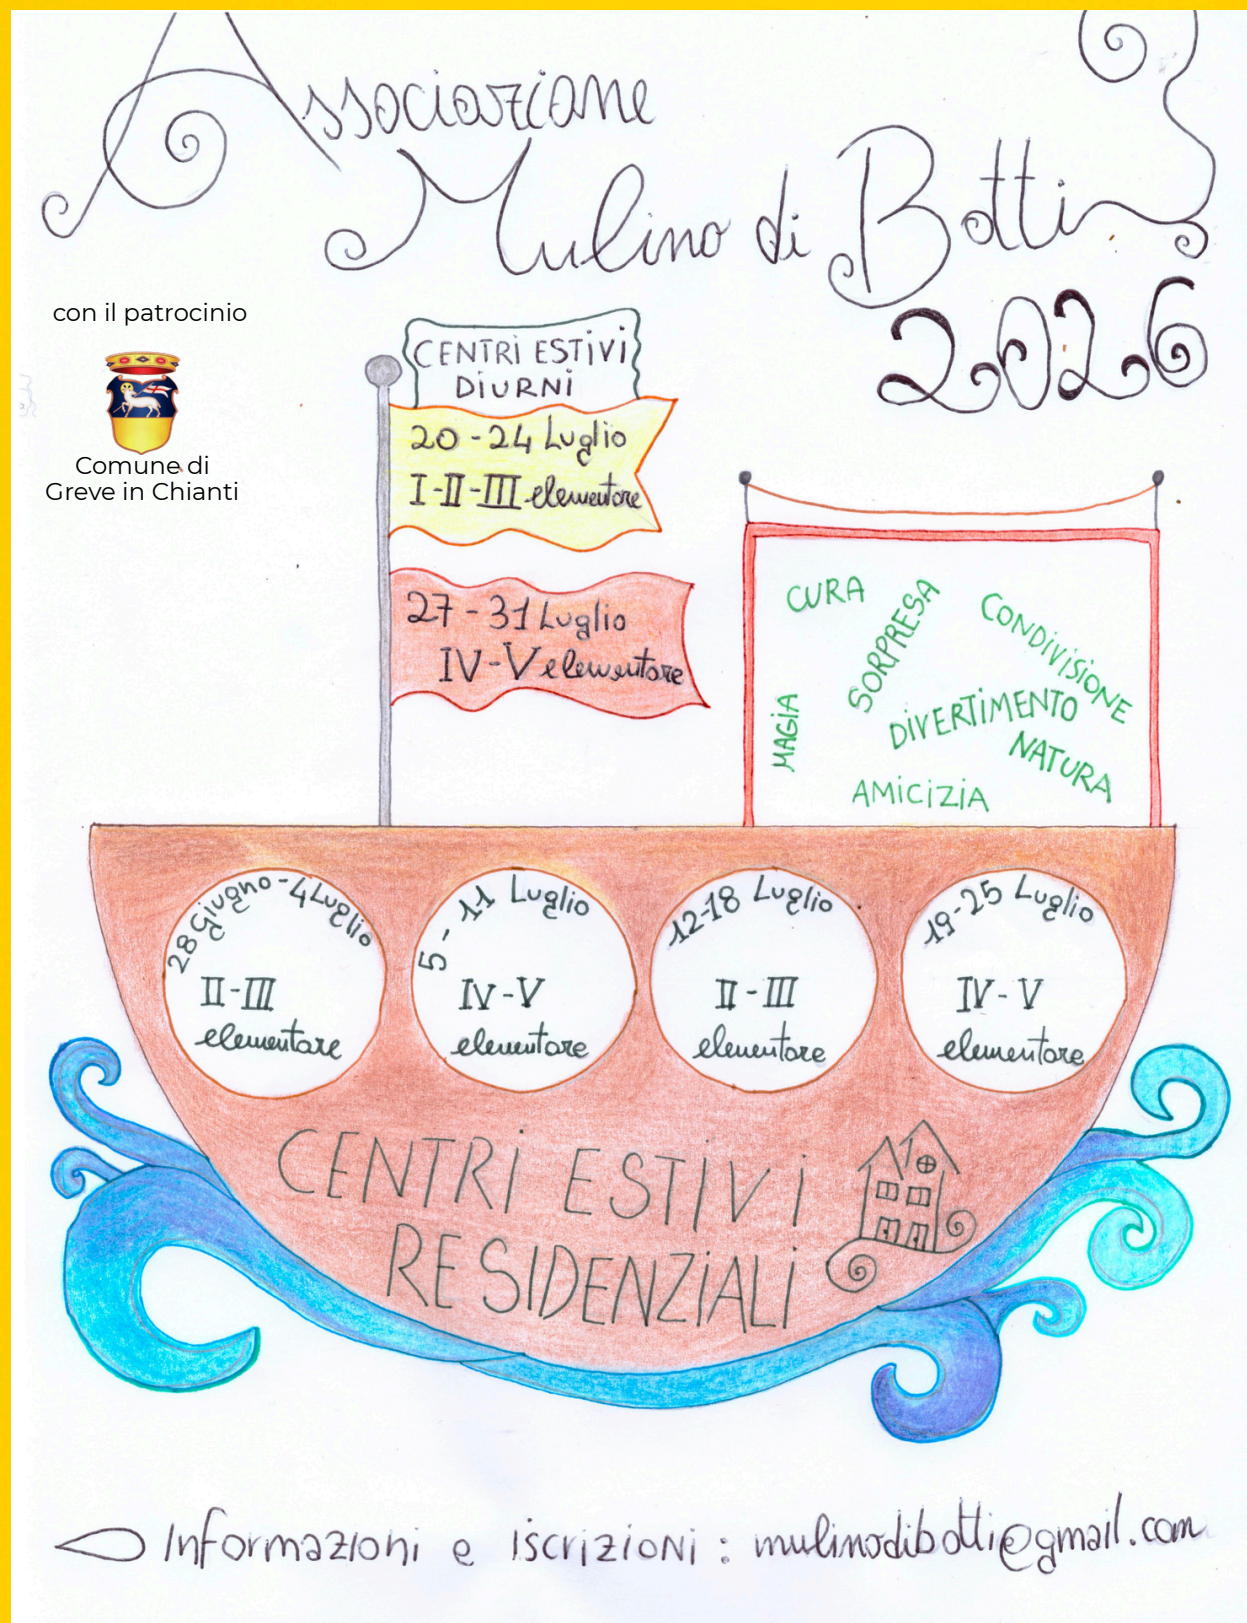 Associazione
Mulino di Botti
2026
con il patrocinio
Comune di
Greve in Chianti
CENTRI ESTIVI
DIURNI
20 - 24 Luglio
I - II - III elementare
27 - 31 Luglio
IV - V elementare
CURA
SORPRESA
CONDIVISIONE
MAGIA
DIVERTIMENTO
NATURA
AMICIZIA
28 Giugno - 4 Luglio
II - III
elementare
5 - 11 Luglio
IV - V
elementare
12-18 Luglio
II - III
elementare
19-25 Luglio
IV - V
elementare
CENTRI ESTIVI
RESIDENZIALI
Informazioni e iscrizioni : mulinodibotti@gmail.com